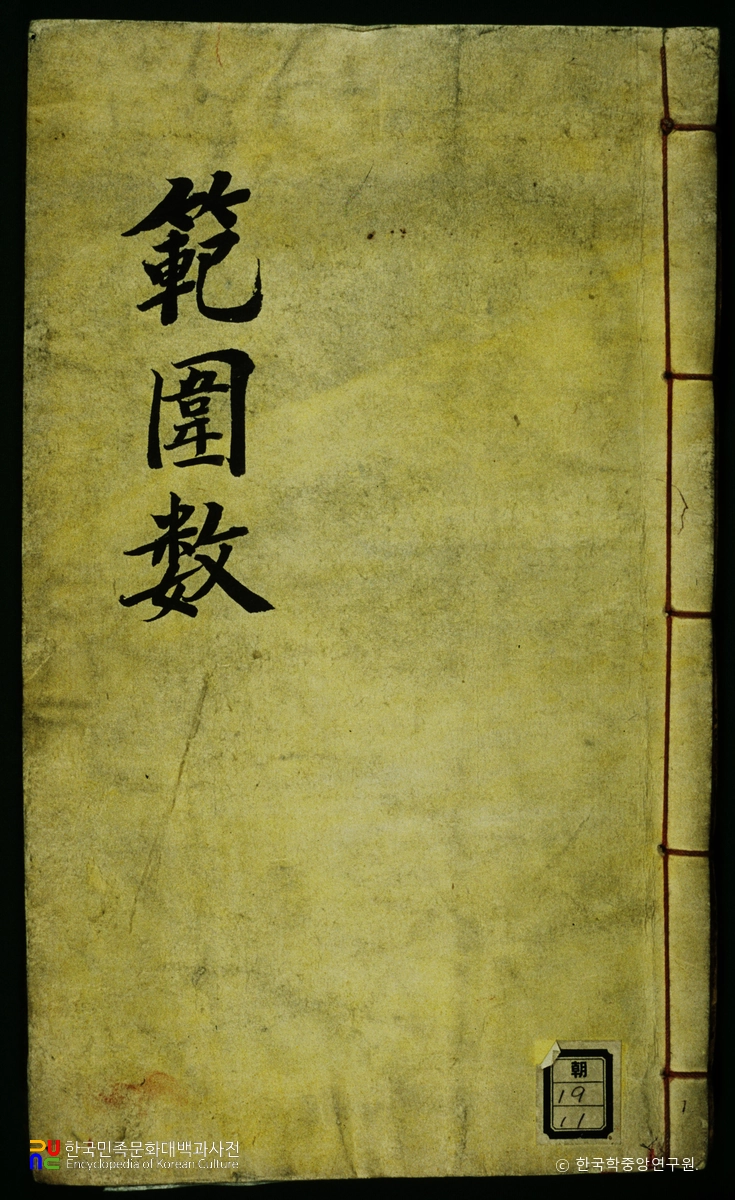 範圍数
朝
19
11
한국민족문화대백과사전
Encyclopedia of Korean Culture
© 한국학중앙연구원